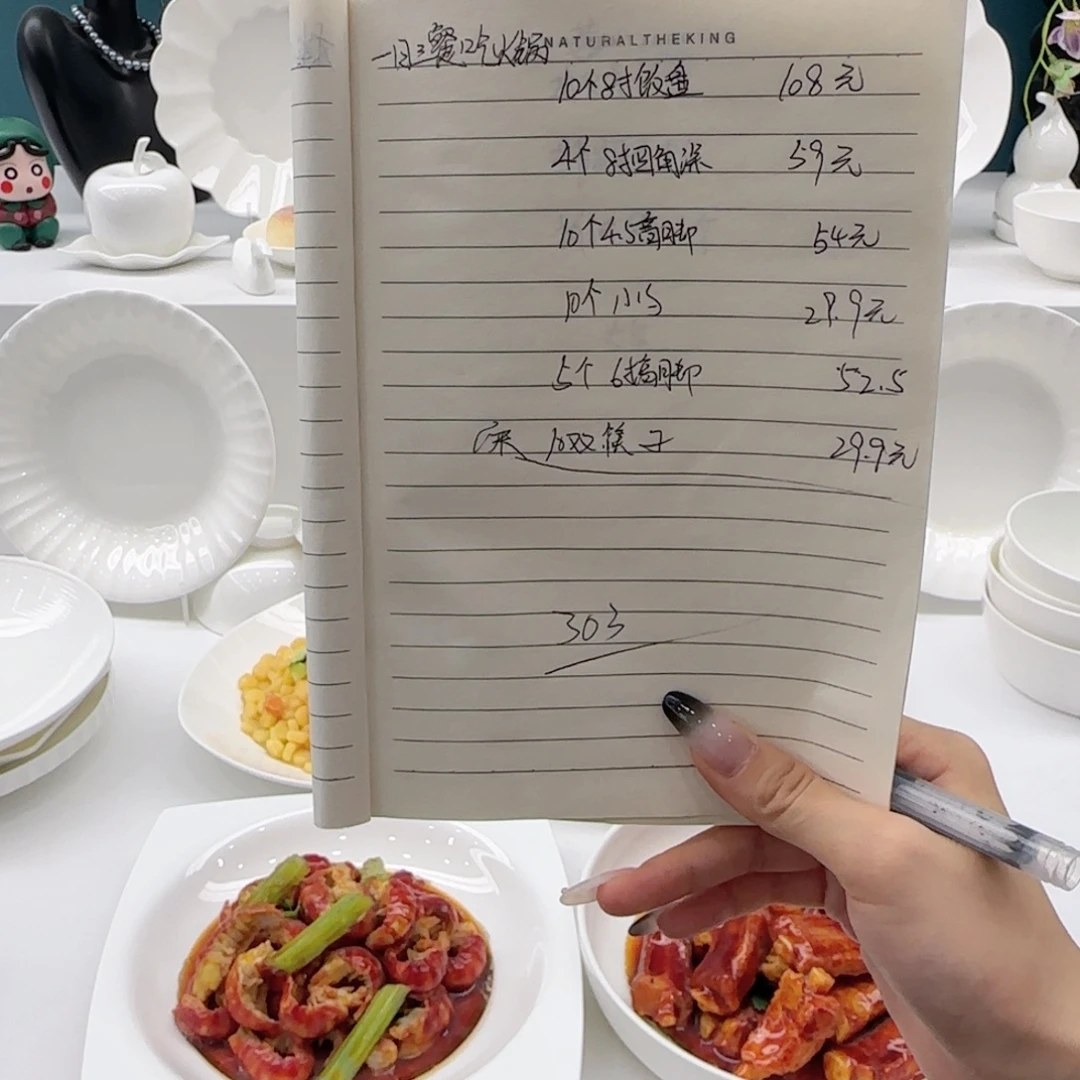 NATURALTHEKING
一日三餐吃火锅
10个8寸饭盘 108元
4个8寸四角深 59元
10个4.5高脚 54元
10个小勺 29.9元
5个6寸高脚 52.5
送 10双筷子 29.9元
303